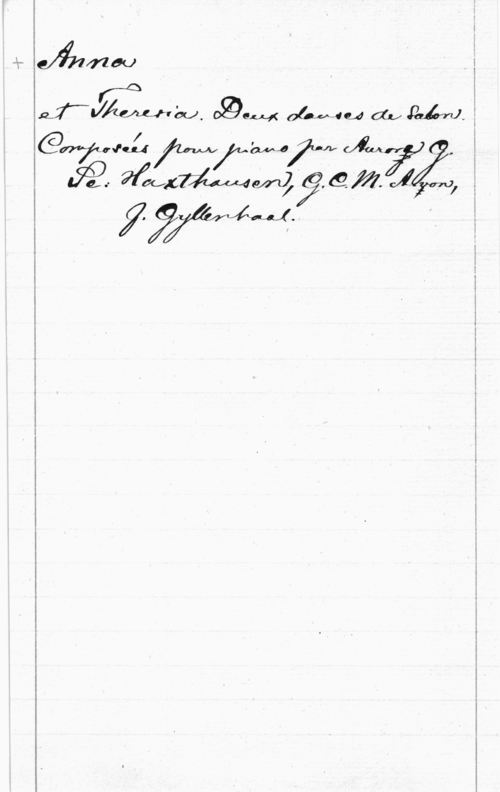 + Anna
et Theresia. Deux danses de Salon.
Composées pour piano par Aurore G.
Se: Haxthausen, G. C. M. Aron,
J. Gyllenhaal.